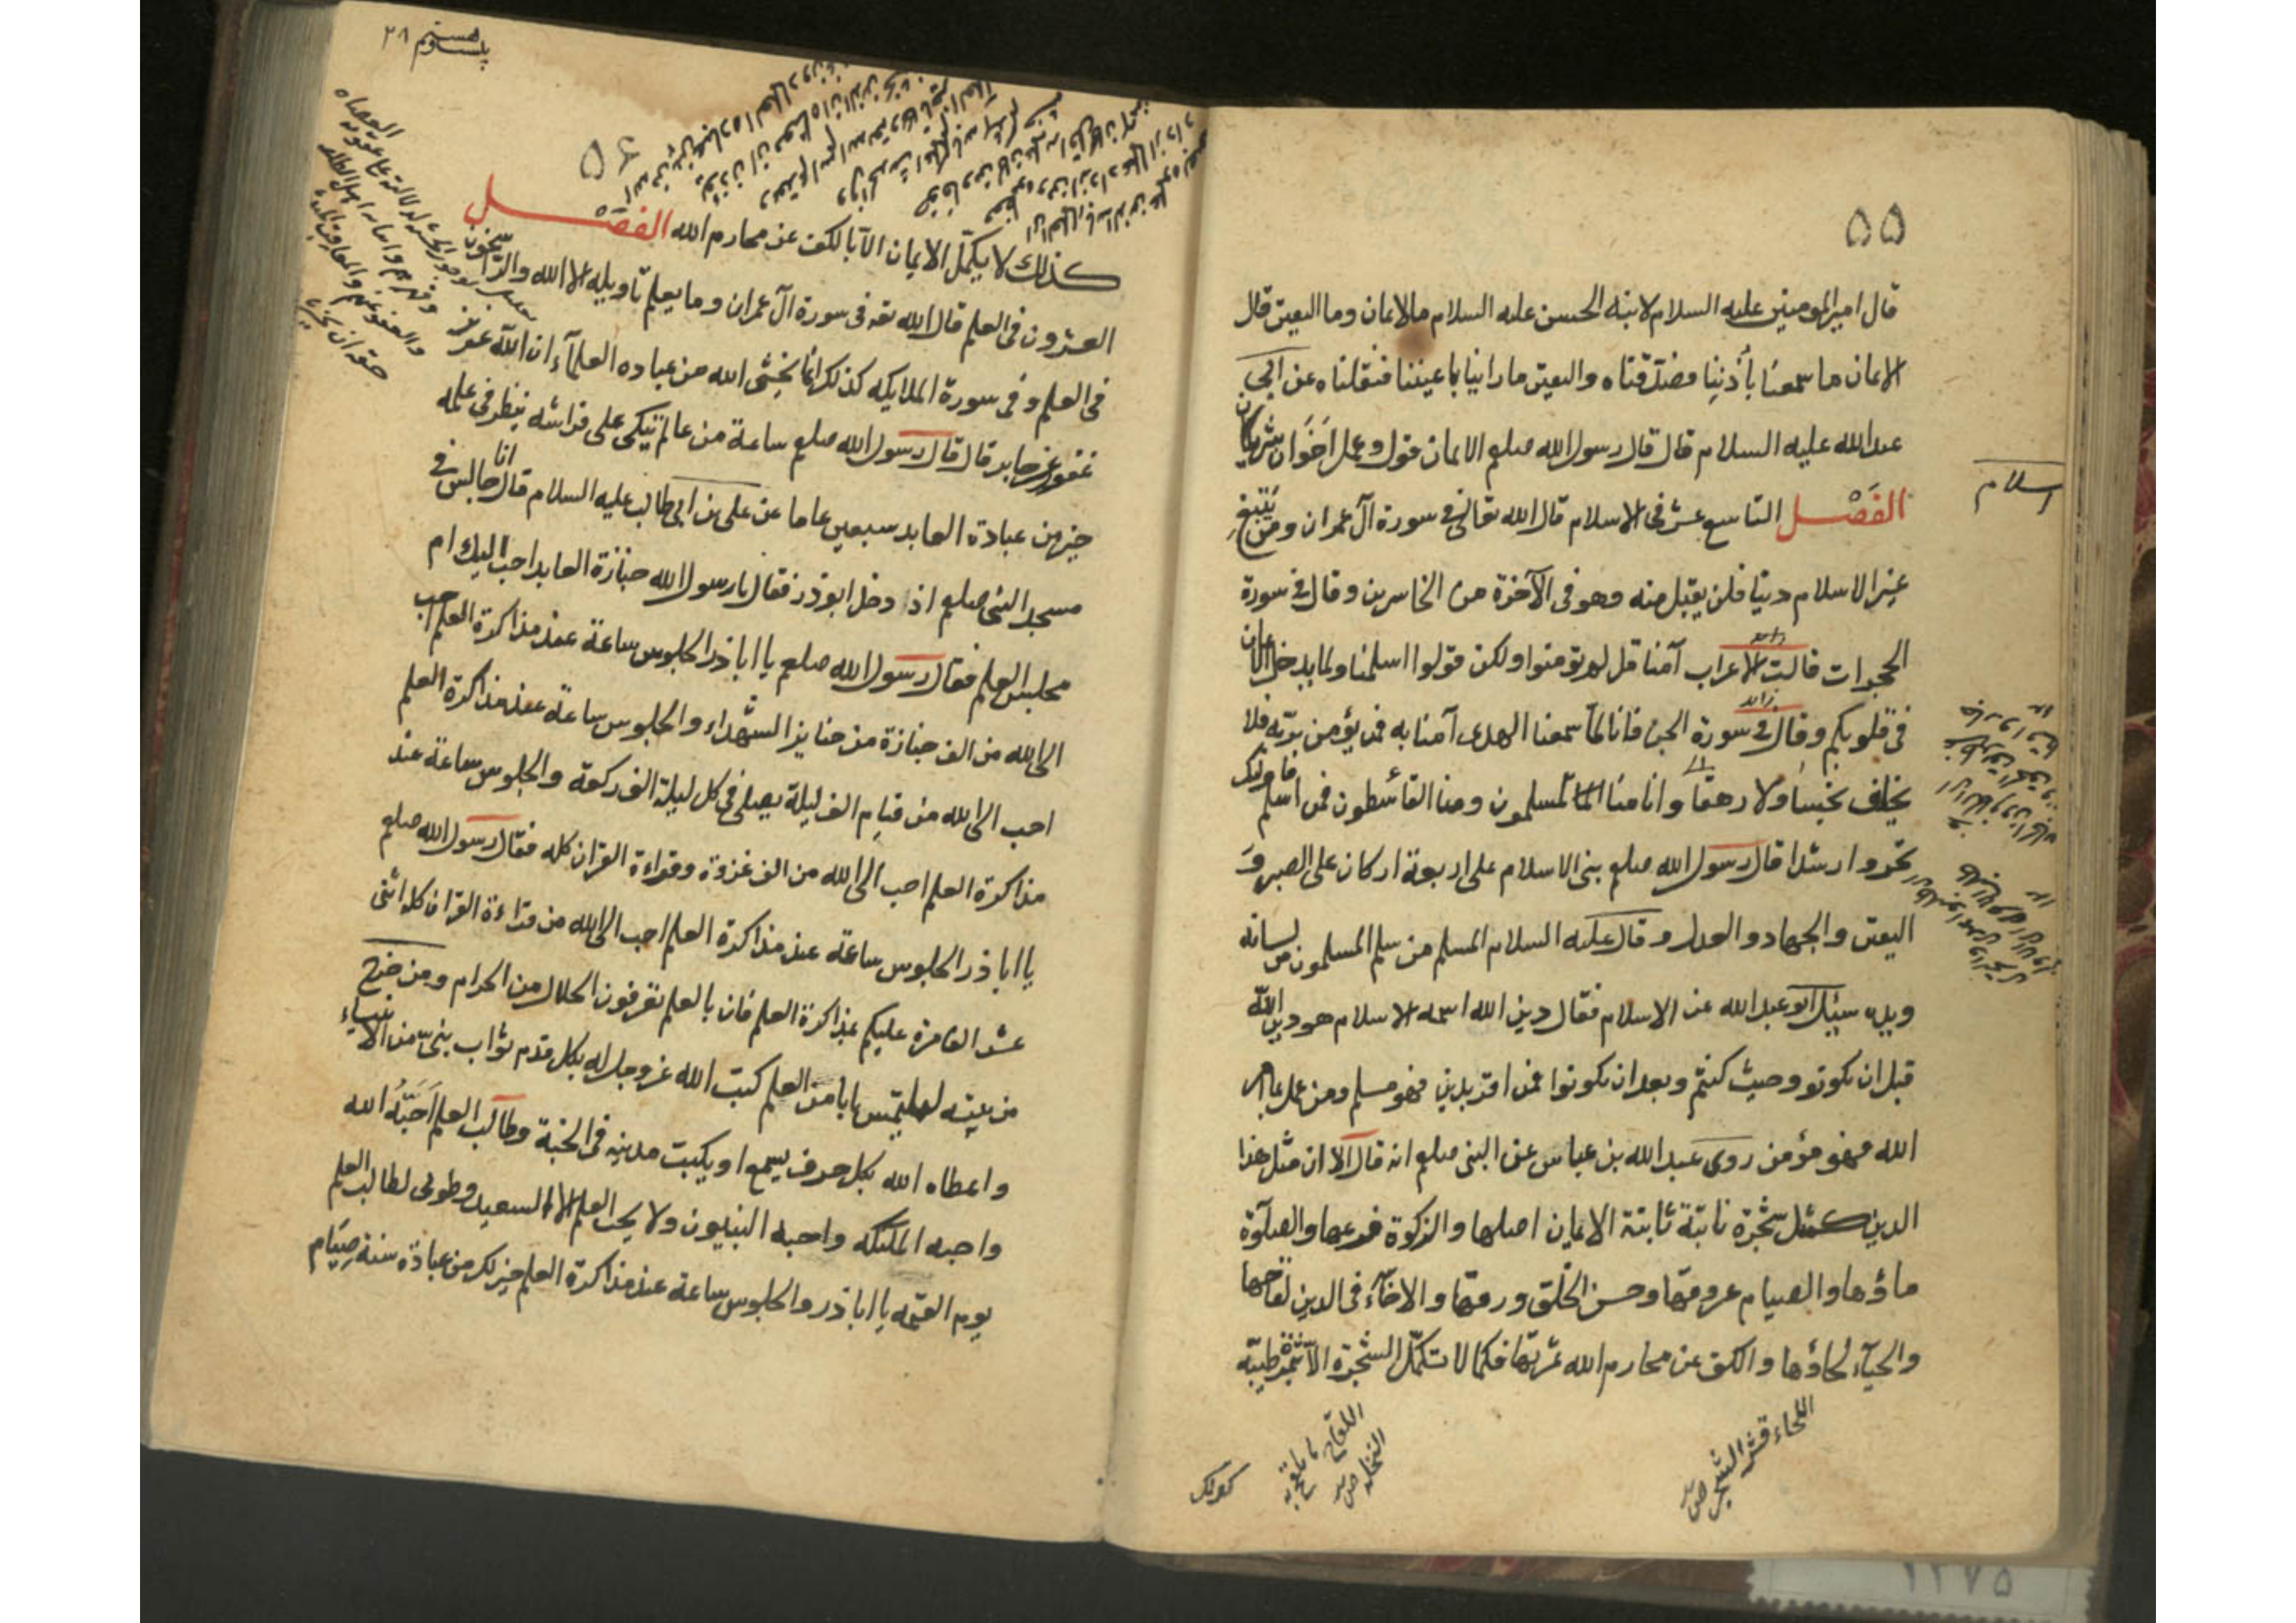 ٥٥
قال امير المومنين عليه السلام لابنه الحسن عليه السلام ما الايمان وما اليقين قال
الايمان ما سمعنا بأذننا فصدّقناه واليقين ما راينا باعيننا فنقلناه عن ابي
عبد الله عليه السلام قال قال رسول الله صلعم الايمان قول وعمل اخوان شريكان
اسلام
الفصل التاسع عشر في الاسلام قال الله تعالى في سورة آل عمران ومن يبتغ
غير الاسلام دينا فلن يقبل منه وهو في الآخرة من الخاسرين وقال في سورة
الحجرات قالت الاعراب آمنا قل لم تومنوا ولكن قولوا اسلمنا ولما يدخل الايمان
في قلوبكم وقال في سورة الجن فانا لما سمعنا الهدى آمنا به فمن يؤمن بربّه فلا
يخاف بخسا ولا رهقا وانا منا المسلمون ومنا القاسطون فمن اسلم فاولئك
تحروا رشدا قال رسول الله صلعم بنى الاسلام على اربعة اركان على الصبر و
اليقين والجهاد والعدل وقال عليه السلام المسلم من سلم المسلمون من لسانه
ويده سئيل ابو عبد الله عن الاسلام فقال دين الله اسمه الاسلام هو دين الله
قبل ان تكونو وحيث كنتم وبعد ان تكونوا فمن اقر بدين فهو مسلم ومن عمل بما امر
الله فهو مؤمن روى عبد الله بن عباس عن النبى صلعم انه قال الا ان مثل هذا
الدين كمثل شجرة نابتة ثابتة الايمان اصلها والزكوة فرعها والصلوة
ماؤها والصيام عروقها وحسن الخلق ورقها والاخآء في الدين لقاحها
والحيآء لحاؤها والكف عن محارم الله ثمرتها فكما لا تكمل الشجرة الا بثمرة طيبة
اللحاء قشر الشجر ص
اللقاح ما تلقح به
النخلة ص
كذلك
٥٦
كذلك لا يكمل الايمان الا بالكف عن محارم الله الفصل
العشرون في العلم قال الله تعه في سورة آل عمران وما يعلم تاويله الا الله والراسخون
في العلم و في سورة الملايكه كذلك انما يخشى الله من عباده العلمآء ان الله عزيز
غفور عن جابر قال قال رسول الله صلعم ساعة من عالم يتكى على فراشه ينظر في علمه
خير من عبادة العابد سبعين عاما عن على بن ابي طالب عليه السلام قال انا جالس في
مسجد النبى صلعم اذا دخل ابوذر فقال يا رسول الله جنازة العابد احب اليك ام
مجلس العلم فقال رسول الله صلعم يا اباذر الجلوس ساعة عند مذاكرة العلم احب
الى الله من الف جنازة من جنايز الشهداء والجلوس ساعة عند مذاكرة العلم
احب الى الله من قيام الف ليلة يصلى في كل ليلة الف ركعة والجلوس ساعة عند
مذاكرة العلم احب الى الله من الف غزوة وقراءة القران كله فقال رسول الله صلعم
يا اباذر الجلوس ساعة عند مذاكرة العلم احب الى الله من قراءة القران كله اثنى
عشر الف مرة عليكم بمذاكرة العلم فان بالعلم تعرفون الحلال من الحرام ومن خرج
من بيته ليلتمس بابا من العلم كتب الله عز وجل له بكل قدم ثواب نبى من الانبياء
واعطاه الله بكل حرف يسمع او يكتب مدينه في الجنة وطالب العلم احبّه الله
واحبه الملئكه واحبه النبيون ولا يحب العلم الا السعيد وطوبى لطالب العلم
يوم القيمه يا اباذر والجلوس ساعة عند مذاكرة العلم خير لك من عبادة سنة صيام
٢٨
١٢٧٥